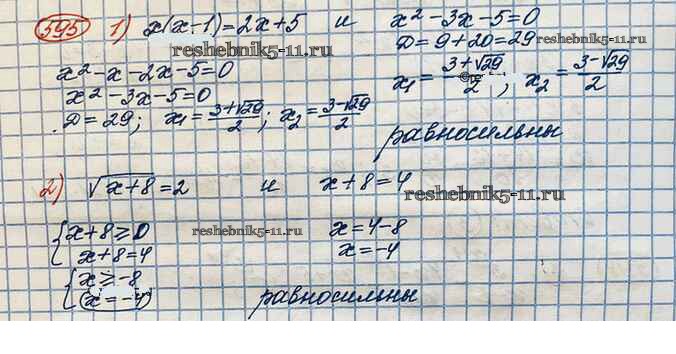 595 1) x(x-1)=2x+5 и x²-3x-5=0
reshebnik5-11.ru
Д=9+20=29
reshebnik5-11.ru
x²-x-2x-5=0
x₁=(3+√29)/2; x₂=(3-√29)/2
x²-3x-5=0
Д=29; x₁=(3+√29)/2; x₂=(3-√29)/2
равносильны
2) √(x+8)=2 и x+8=4
reshebnik5-11.ru
{x+8≥0
x+8=4
reshebnik5-11.ru
x=4-8
x=-4
{x≥-8
x=-4
равносильны